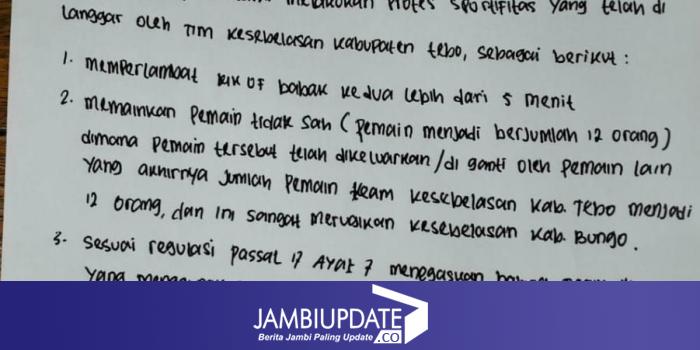 melakukan Protes sportifitas yang telah di
langgar oleh TIM kesebelasan kabupaten tebo, sebagai berikut :
1. memperlambat kik OF babak kedua lebih dari 5 menit
2. memainkan Pemain tidak sah ( pemain menjadi berjumlah 12 orang )
dimana pemain tersebut telah dikeluarkan / di ganti oleh pemain lain
yang akhirnya jumlah pemain team kesebelasan kab. Tebo menjadi
12 orang, dan ini sangat merugikan kesebelasan kab. Bungo.
3. sesuai regulasi passal 17 Ayat 7 menegaskan
yang
JAMBIUPDATE
.CO
Berita Jambi Paling Update